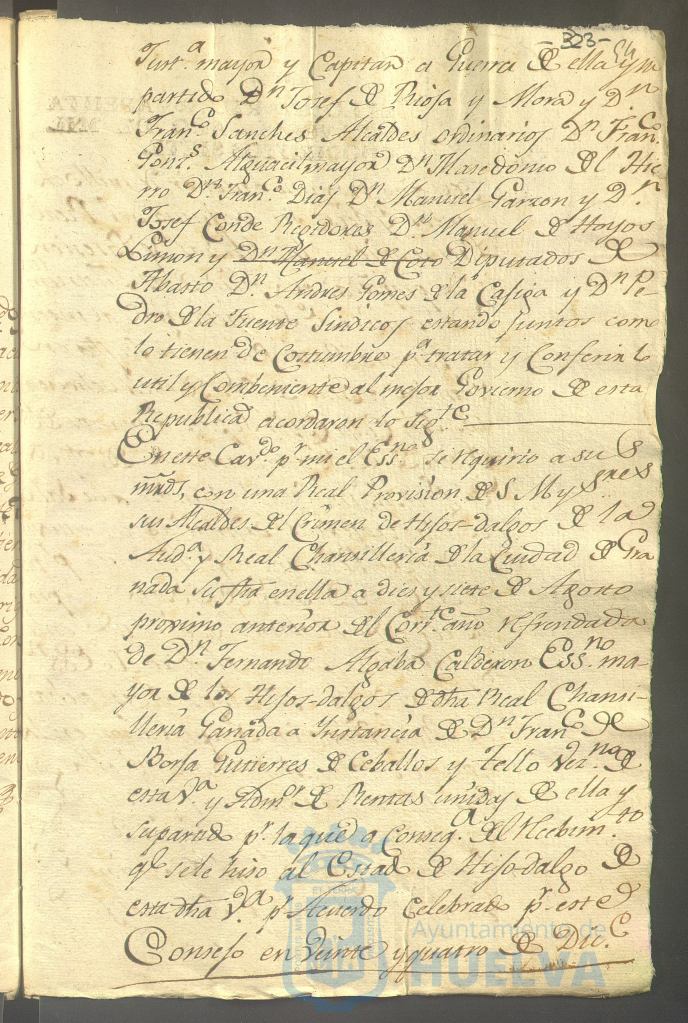 -323-
Just.ª mayor y Capitan a Guerra de ella y su
partido Dn Josef de Rioja y Mora y Dn
Franco Sanches Alcaldes ordinarios Dn Franco
Gonz.s Alguacil mayor Dn Masedonio del Hie
rro Dn Franco Dias Dn Manuel Garzon y Dn
Josef Conde Regidores Dn Manuel de Hoyos
Limon y Dn Manuel de Coto Diputados de
Abasto Dn Andres Gomes de la Casiga y Dn Pe
dro de la Fuente Sindicos estando juntos como
lo tienen de Costumbre pª tratar y Conferir lo
util y Combeniente al mejor Govierno de esta
Republica acordaron lo Sigte
En este Cavdo pr mi el Essno se requirio a sus
mrds, con una Real Provision de S M y Sres
sus Alcaldes del Crimen de Hijos-dalgos de la
Audª y Real Chansilleria de la Ciudad de Gra
nada su fha en ella a dies y siete de Agosto
proximo anterior del Corte año refrendada
de Dn Fernando Algaba Calderon Essno ma-
yor de los Hijos-dalgos de dha Real Chansi-
lleria Ganada a Instancia de Dn Franco de
Borja Gutierres de Ceballos y Tello Vezno de
esta Vª y Admr de Rentas unidas de ella y
su parado pr la que a Conseqª del Recibimto
qe se le hiso al Estado de Hijo-dalgo de
esta dha Vª pr Acuerdo Celebrado pr este
Consejo en Veinte y quatro de Dice
Ayuntamiento de
HUELVA